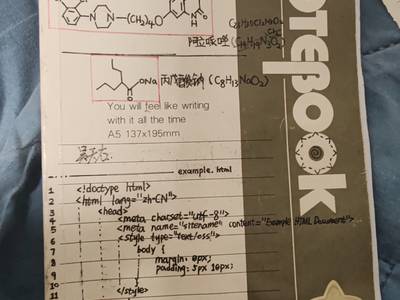 -(CH₂)₄O
阿立哌唑
丙戊酸钠 (C₈H₁₃NaO₂)
ONa
NOTEBOOK
You will feel like writing
with it all the time
A5 137x195mm
example.html
1 <!doctype html>
2 <html lang="zh-CN">
3 <head>
4 <meta charset="utf-8">
5 <meta name="sitename" content="Example HTML Document">
6 <style type="text/css">
7 body {
8 margin: 0px;
9 padding: 5px 10px;
10 }
11 </style>